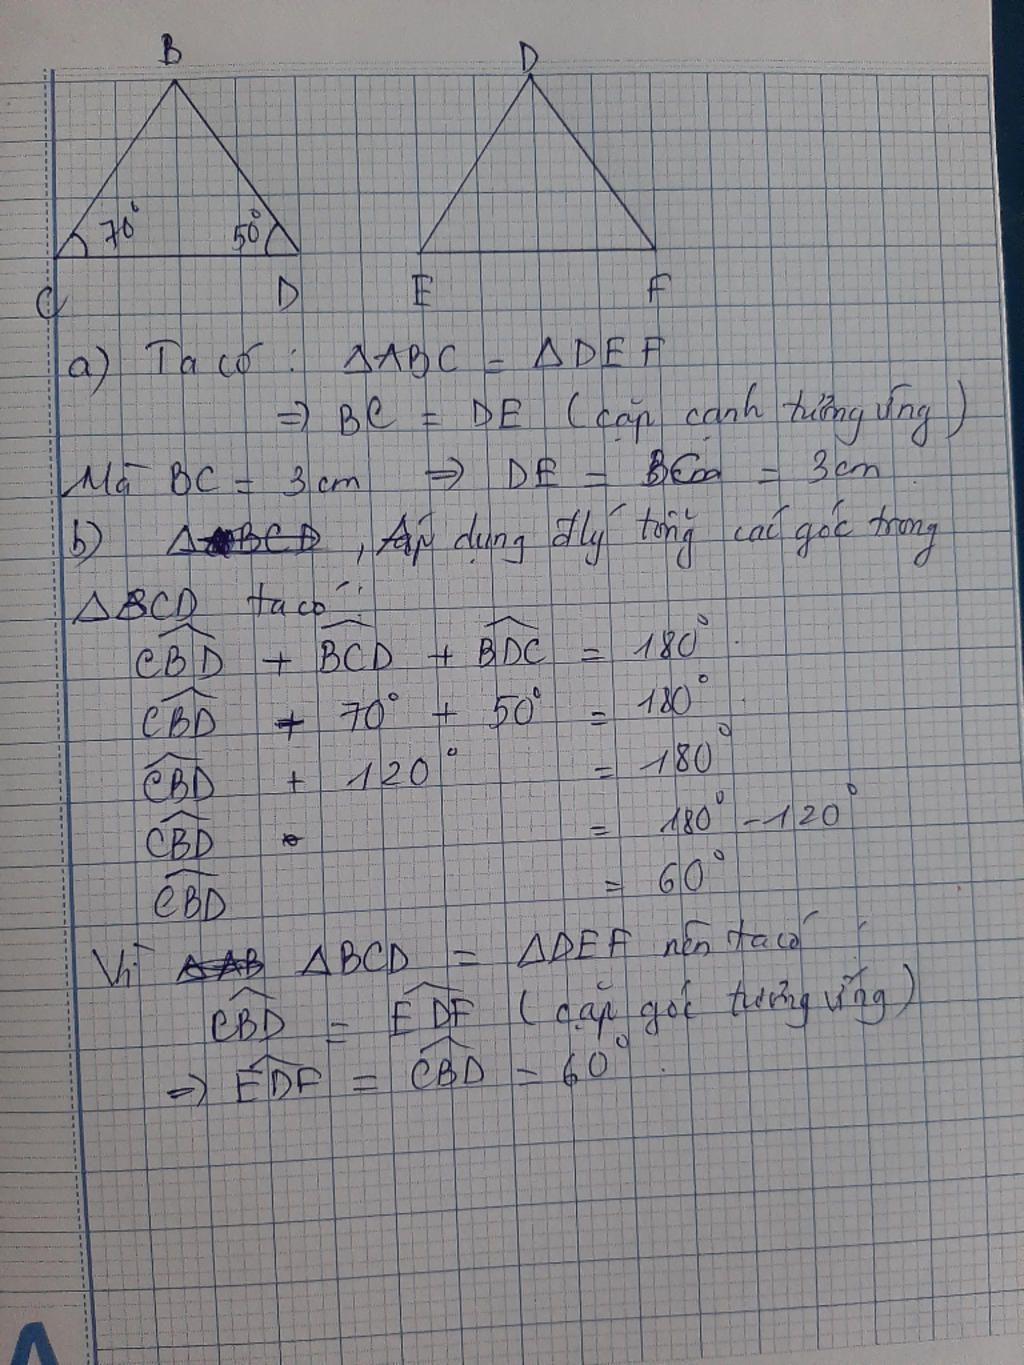 B D
70° 50°
C D E F
a) Ta có : ΔABC = ΔDEF
=> BC = DE (cặp cạnh tương ứng)
Mà BC = 3cm => DE = BC = 3cm
b) ΔBCD , Áp dụng đlý tổng các góc trong
ΔBCD ta có :
CBD + BCD + BDC = 180°
CBD + 70° + 50° = 180°
CBD + 120° = 180°
CBD = 180° - 120°
CBD = 60°
Vì ΔAB ΔBCD = ΔDEF nên ta có :
CBD = EDF (cặp góc tương ứng)
=> EDF = CBD = 60° .